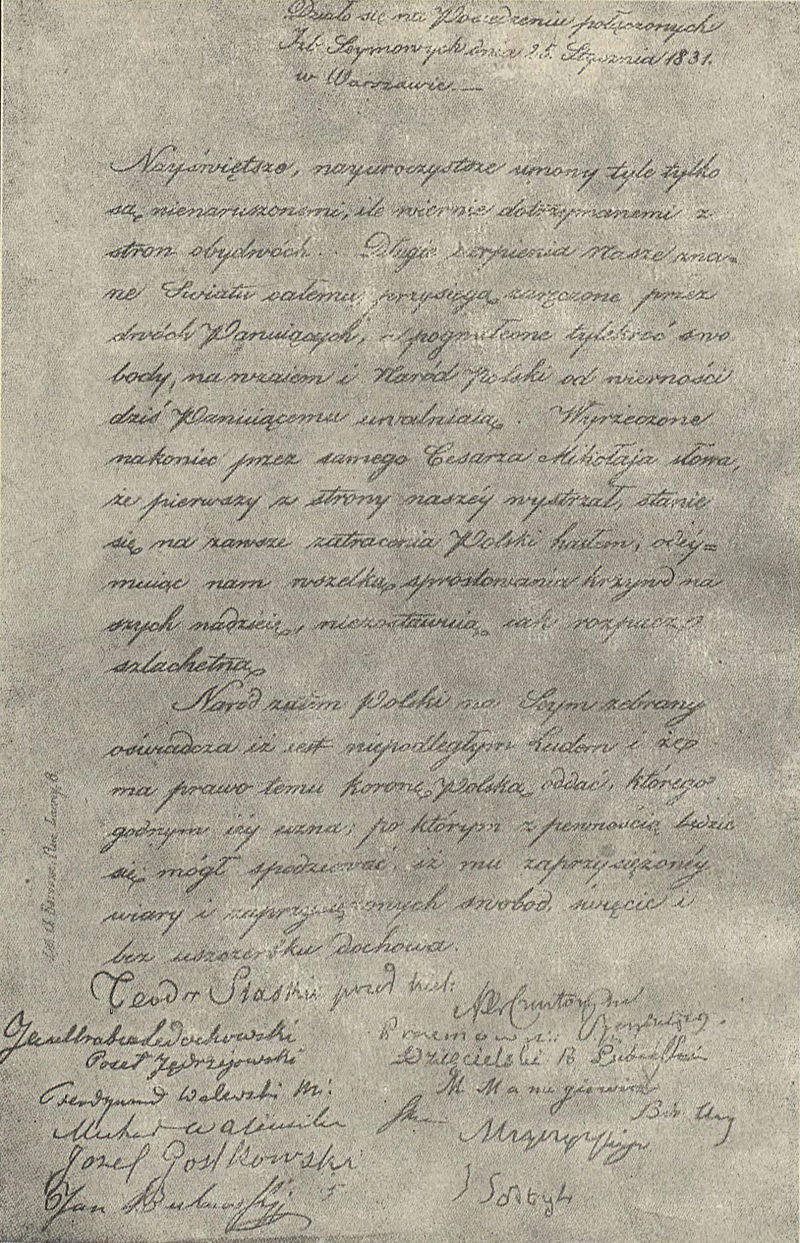 Działo się na Posiedzeniu połączonych
Izb Seymowych dnia 25. Stycznia 1831.
w Warszawie.—
Nayświętsze, nayuroczystsze umowy tyle tylko
są nienaruszonemi, ile wiernie dotrzymanemi z
stron obydwóch. Długie cierpienia Nasze zna=
ne Światu całemu, przysięgą zaręczone przez
dwóch Panuiących, a pogwałcone tylekroć swo
body, nawzaiem i Naród Polski od wierności
dziś Panuiącemu uwalniaią. Wyrzeczone
nakoniec przez samego Cesarza Mikołaja słowa,
że pierwszy z strony naszéy wystrzał, stanie
się na zawsze zatracenia Polski hasłem, odey=
muiąc nam wszelką sprostowania krzywd na
szych nadzieię, niezostawuią iak rozpacz
szlachetną.
Naród zatim Polski na Seym zebrany
oświadcza iż iest niepodległym Ludem i że
ma prawo temu koronę Polską oddać, którego
godnym iéy uzna; po którym z pewnością będzie
się mógł spodziewać, iż mu zaprzysiężonéy
wiary i zaprzysiężonych swobod, święcie i
bez uszczerbku dochowa.
Teodor
Ledochowski
Poseł Jędrzejowski
Ferdynand Walewski
Michał
Józef Gostkowski
Jan
Dzięcielski
M
Sołtyk